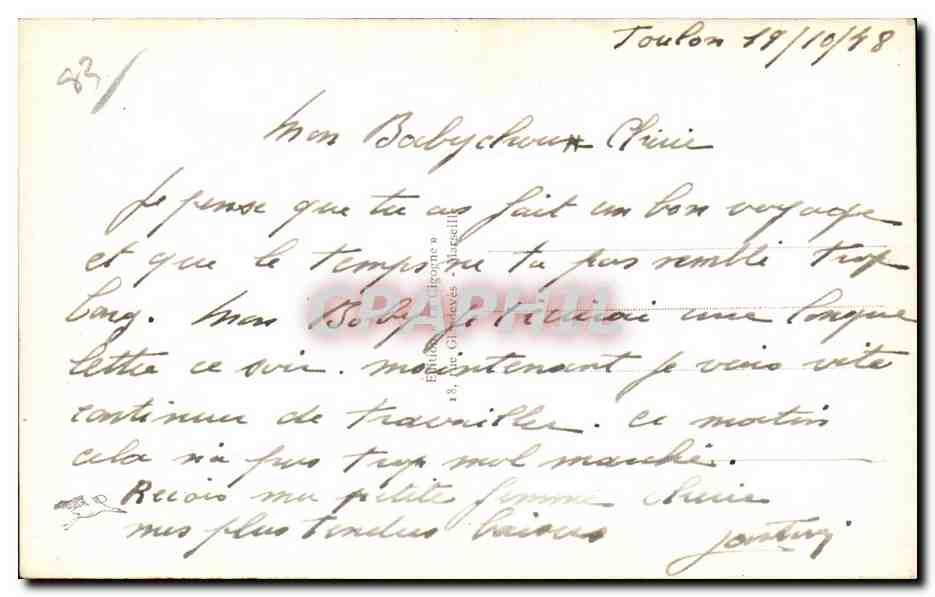 Toulon 19/10/48
Mon Babychoux Chérie
Je pense que tu as fait un bon voyage
et que le temps ne ta pas semblé trop
long. Mon Baby je t'ecrirai une longue
lettre ce soir. maintenant je vais vite
continuer de travailler. ce matin
cela n'a pas trop mal marché.
Recois ma petite femme cherie
mes plus tendres baisers
Editions « La Cigogne »
18, rue - Marseille
CPAPHIL